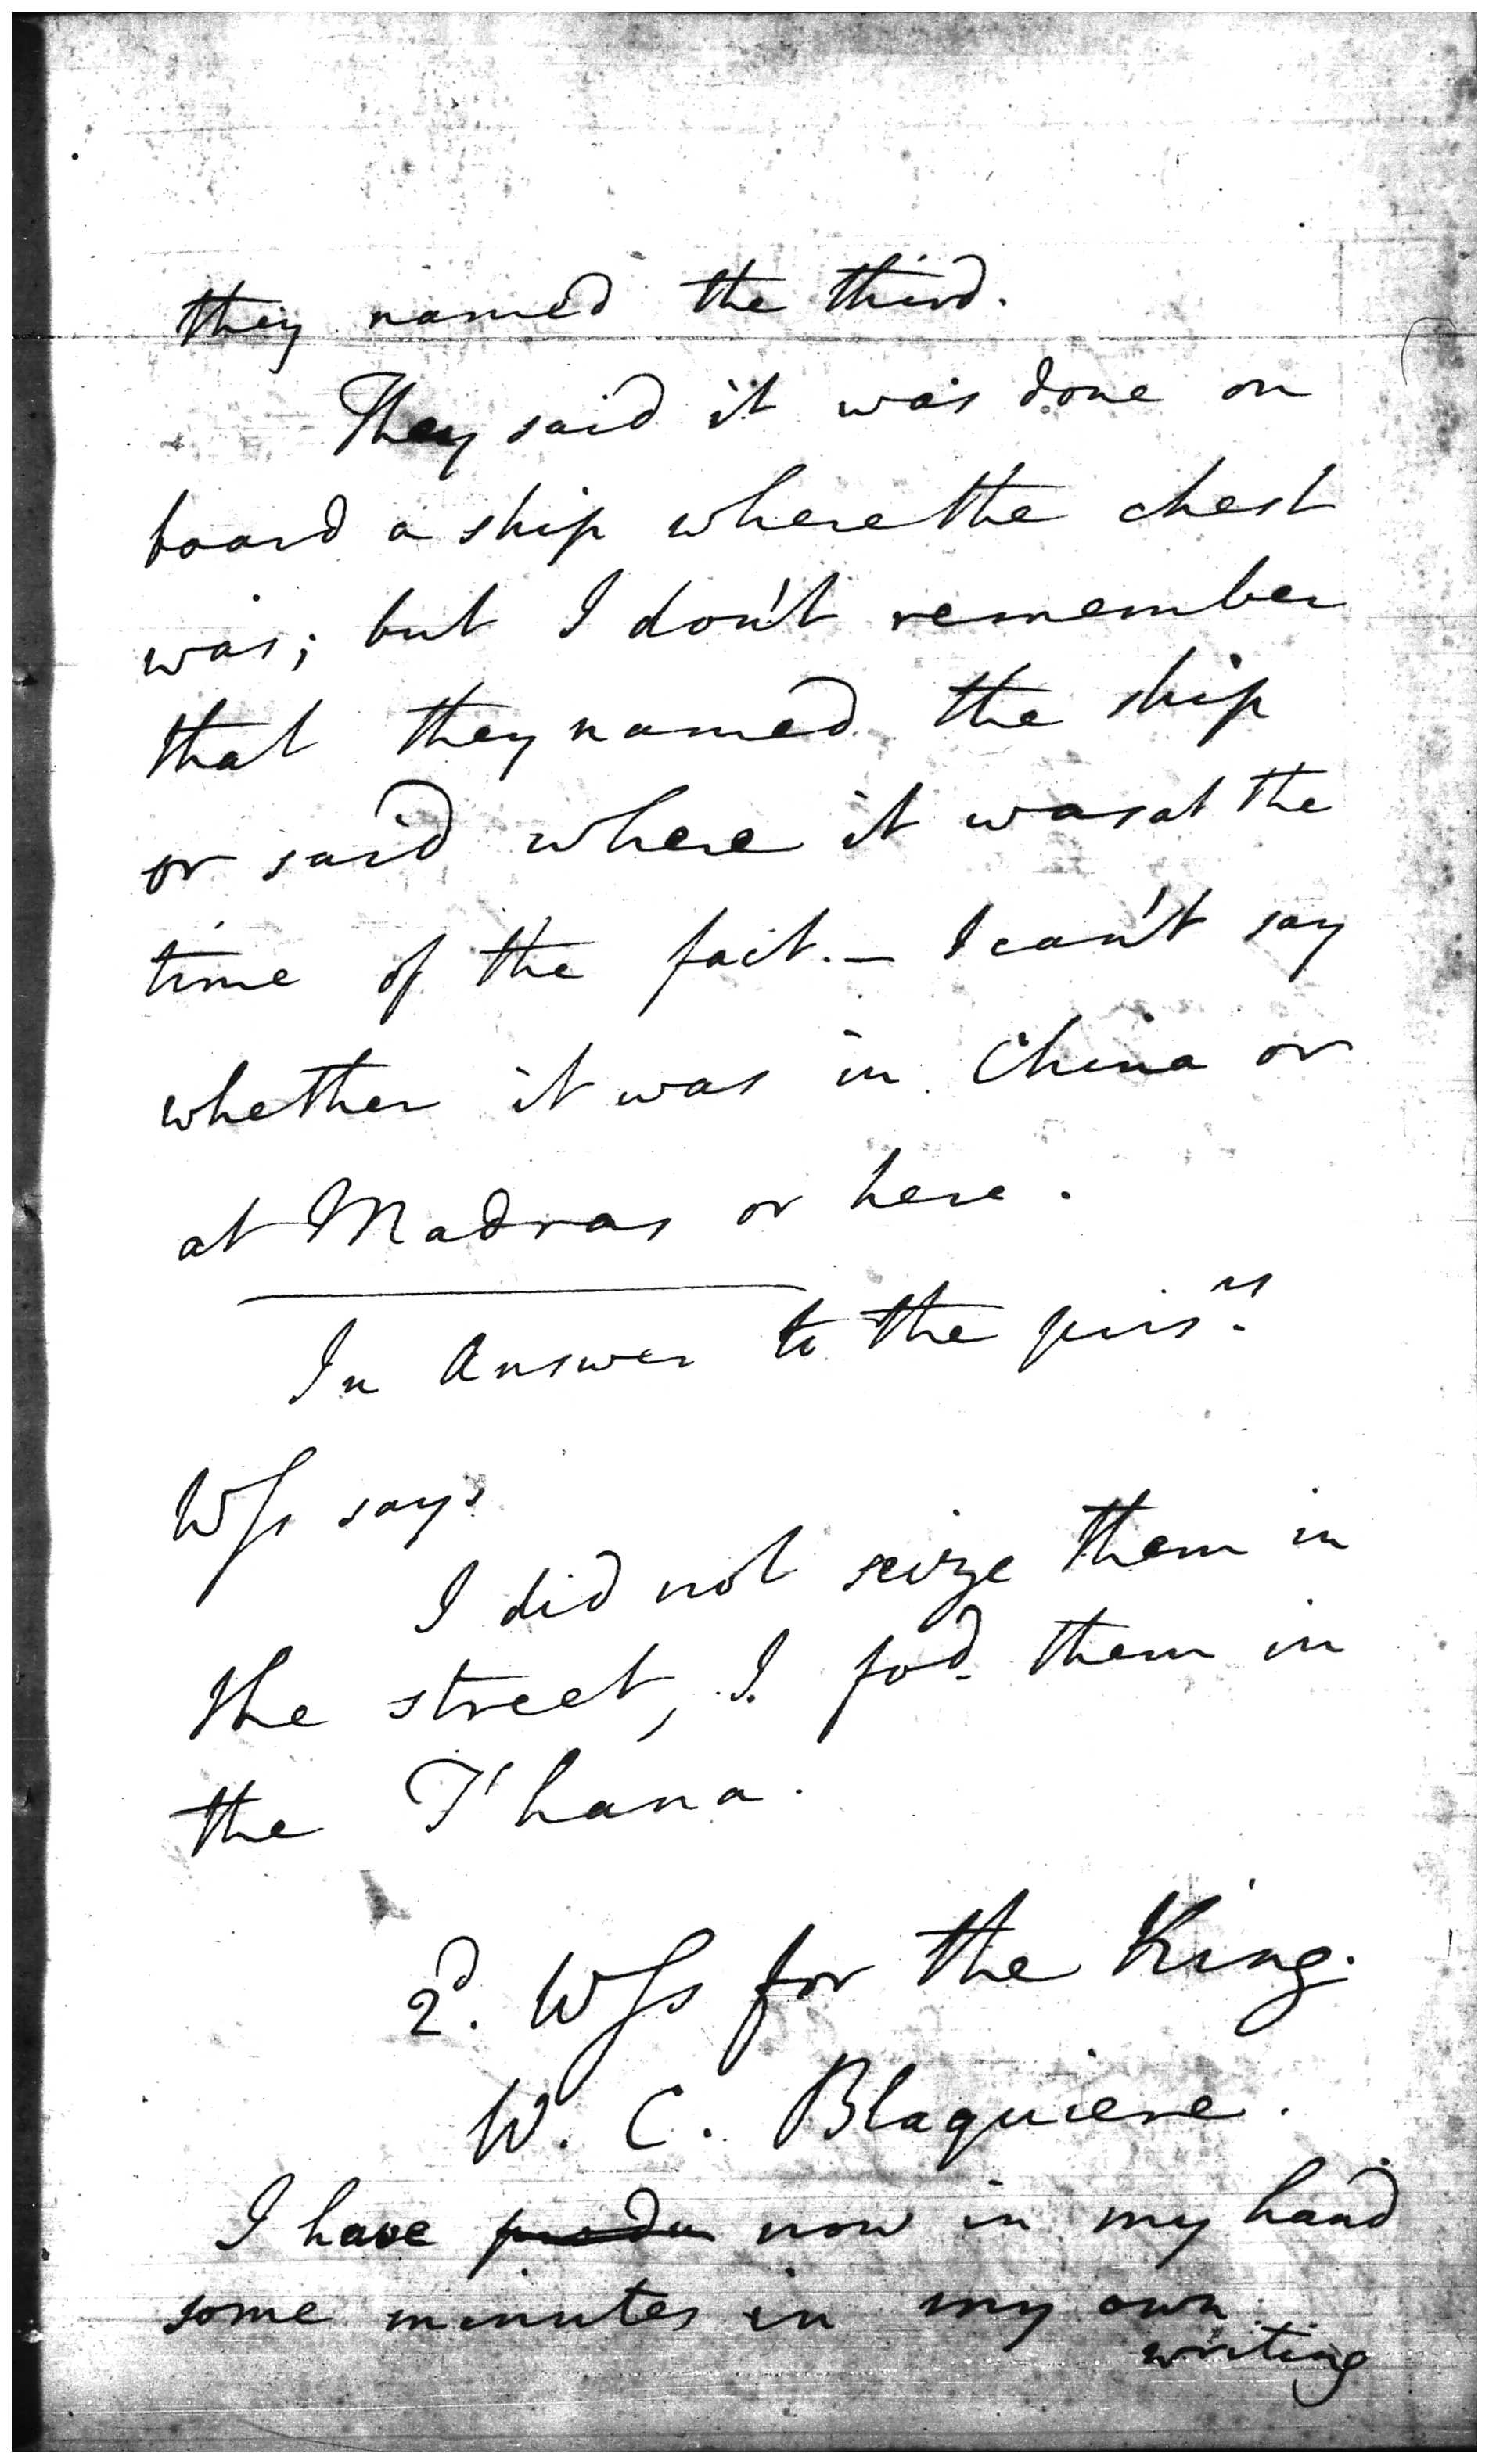 they named the third.
They said it was done on
board a ship where the chest
was; but I don't remember
that they named the ship
or said where it was at the
time of the fact. — I can't say
whether it was in China or
at Madras or here.
In Answer to the pris.rs
Wſs says
I did not seize them in
the street, I fod. them in
the T'hana.
2d. Wſs for the King.
W. C. Blaquiere.
I have now in my hand
some minutes in my own
writing